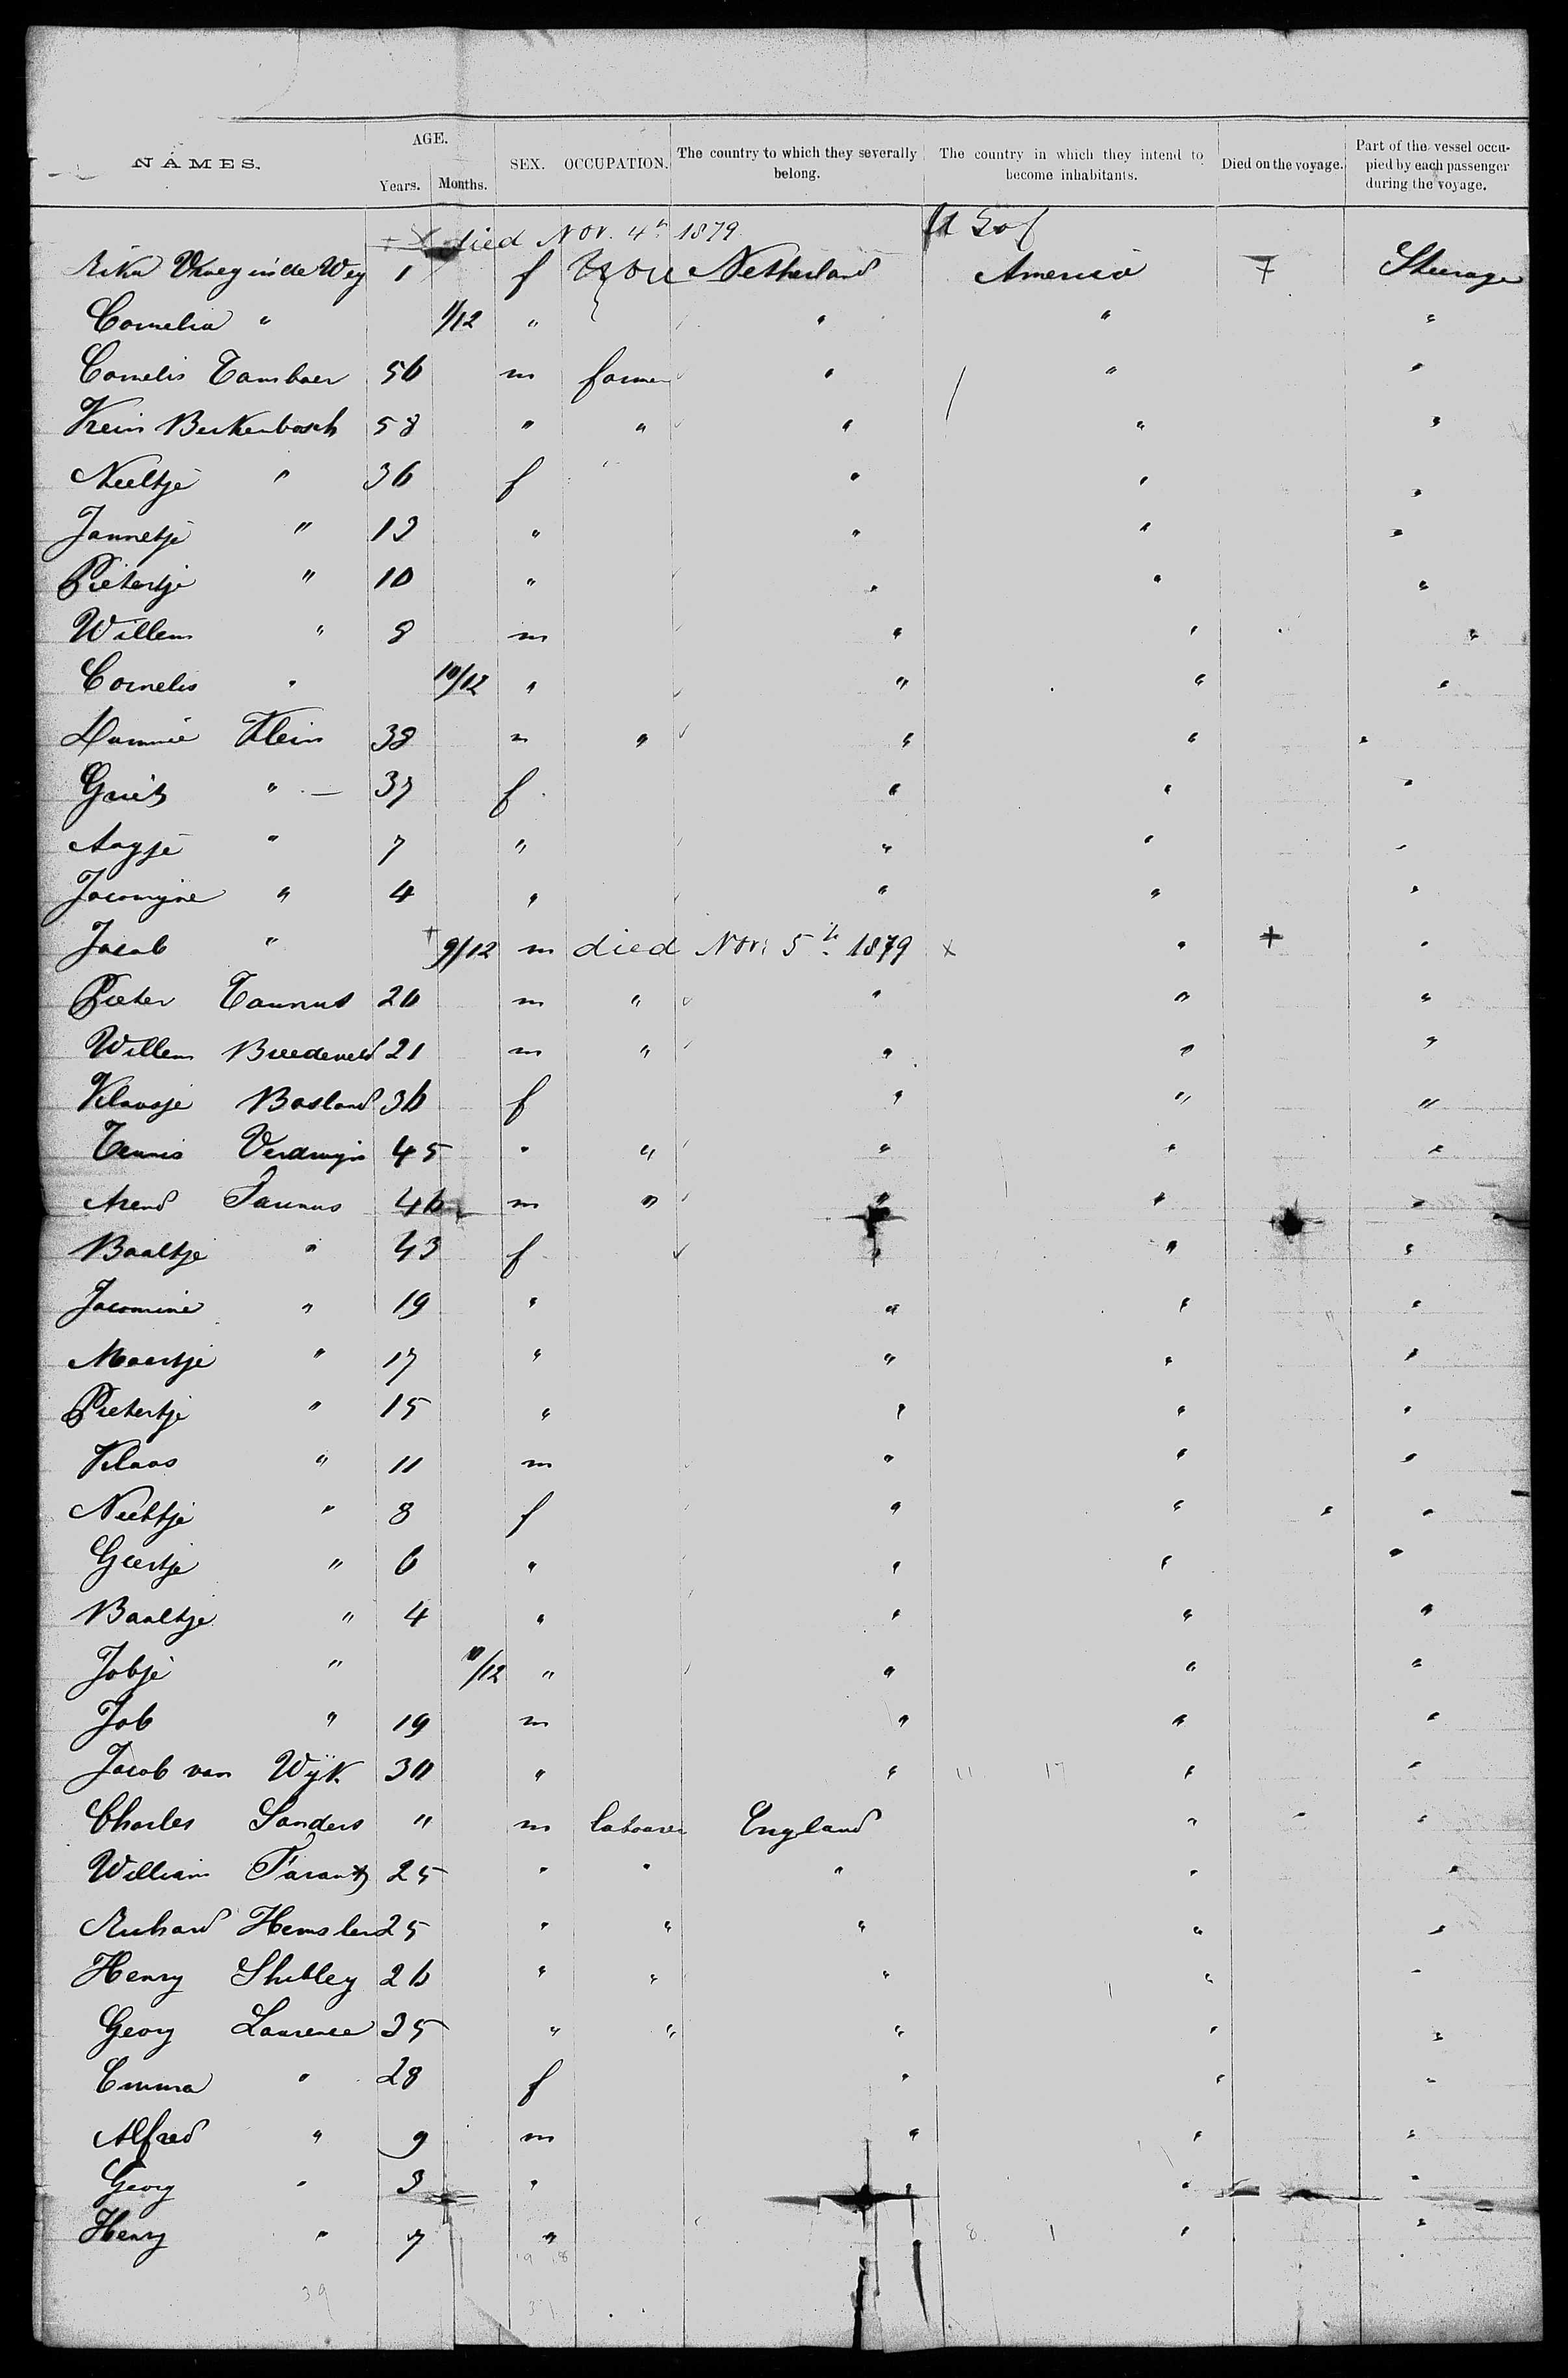 NAMES. AGE. SEX. OCCUPATION. The country to which they severally belong. The country in which they intend to become inhabitants. Died on the voyage. Part of the vessel occupied by each passenger during the voyage.
Years. Months.
+ died Nov. 4th 1879 U S of
Vroeg in de Wey 1 f Netherland America + Steerage
Cornelia " 1/12 " " " "
Cornelis Tamboer 56 m farmer " " "
Krein Berkenbosch 58 " " " " "
Neeltje " 36 f " " "
Jannetje " 13 " " " "
Pietertje " 10 " " " "
Willem " 8 m " " "
Cornelis " 10/12 " " " "
Klein 38 m " " " "
Griet " 37 f " " "
Aagje " 7 " " " "
Jacomijne " 4 " " " "
Jacob " + 9/12 m died Nov: 5th 1879 x " + "
Pieter Taunus 26 m " " " "
Willem Breedeveld 21 m " " " "
Klaasje Basland 36 f " " "
Teunis Verdwijn 45 " " " " "
Arend Taunus 46 m " " " "
Baaltje " 43 f " " "
Jacomine " 19 " " " "
Maartje " 17 " " " "
Pietertje " 15 " " " "
Klaas " 11 m " " "
Neeltje " 8 f " " " "
Geertje " 6 " " " "
Baaltje " 4 " " " "
Jobje " /12 " " " "
Job " 19 m " " "
Jacob van Wijk 30 " " 11 17 " "
Charles Sanders " m labourer England " "
William 25 " " " " "
Richard 25 " " " " "
Henry Shibley 26 " " " " "
Georg Laurence 35 " " " " "
Emma " 28 f " " "
Alfred " 9 m " " "
Georg " 3 " " " "
Henry " 7 " 8 1 " "
19 18
39 31